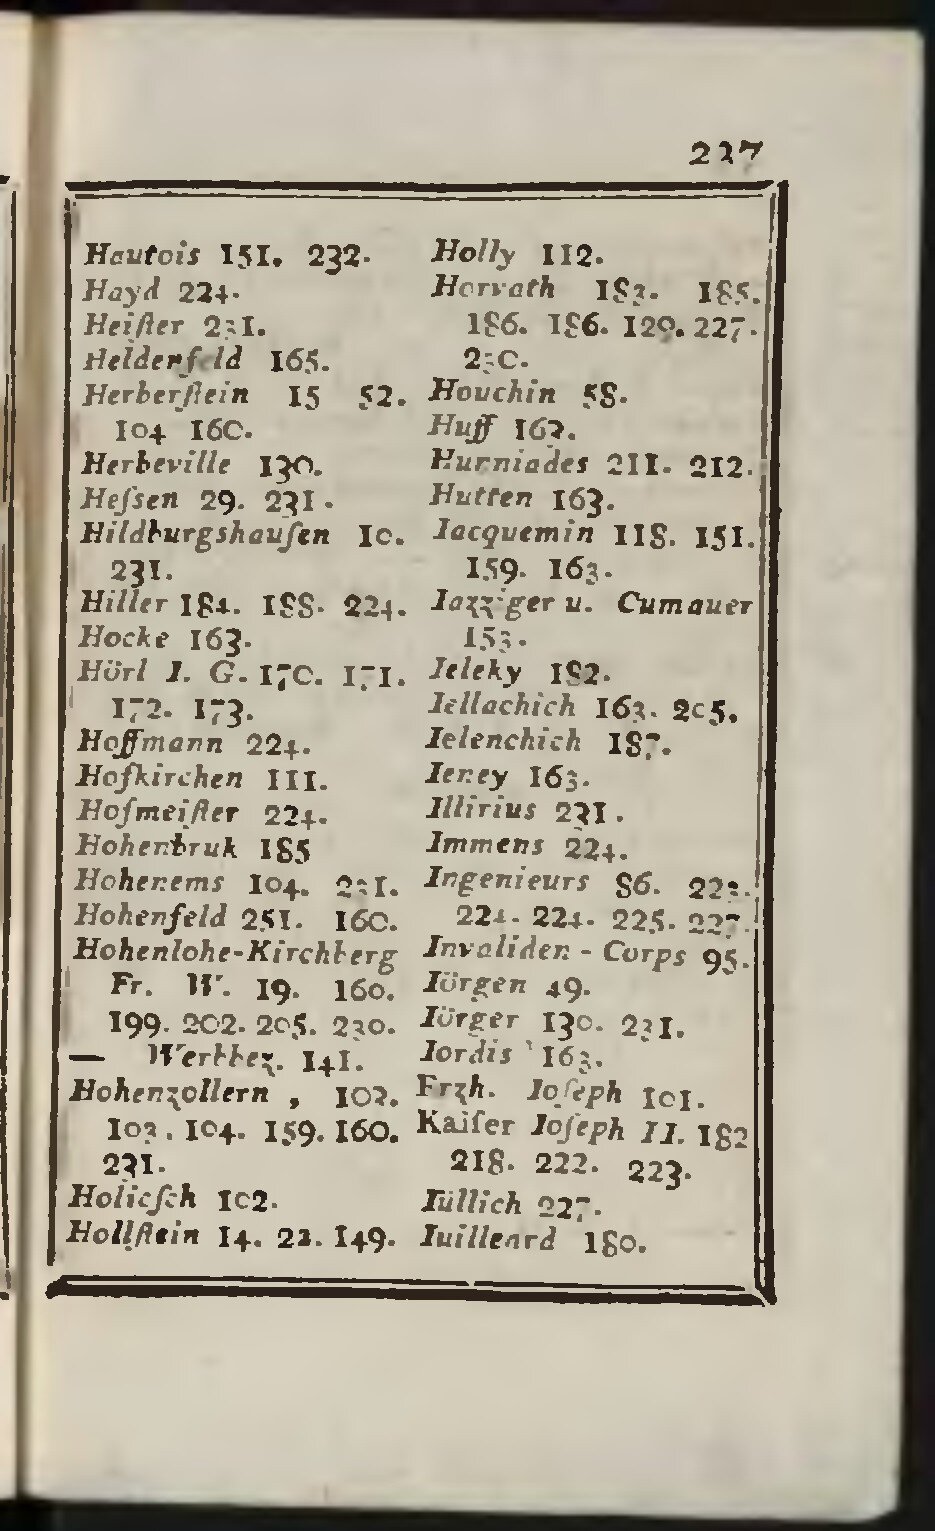 237
Hautois 151. 232.
Hayd 224.
Heiſter 231.
Heldenfeld 165.
Herberſtein 15 52.
104 160.
Herbeville 130.
Heſsen 29. 231.
Hildburgshauſen 10.
231.
Hiller 184. 188. 224.
Hocke 163.
Hörl I. G. 170. 171.
172. 173.
Hoffmann 224.
Hofkirchen 111.
Hofmeiſter 224.
Hohenbruk 185
Hohenems 104. 231.
Hohenfeld 251. 160.
Hohenlohe-Kirchberg
Fr. W. 19. 160.
199. 202. 205. 230.
— 141.
Hohenzollern, 102.
103. 104. 159. 160.
231.
Holicſch 102.
Hollſtein 14. 22. 149.
Holly 112.
Horvath 183. 185.
186. 186. 129. 227.
230.
Houchin 58.
Huff 162.
Hurniades 211. 212.
Hutten 163.
Iacquemin 118. 151.
159. 163.
Iazziger u. Cumauer
153.
Ieleky 182.
Iellachich 163. 205.
Ielenchich 187.
Ieney 163.
Illirius 231.
Immens 224.
Ingenieurs 86. 223.
224. 224. 225. 227.
Invaliden-Corps 95.
Iörgen 49.
Iörger 130. 231.
Iordis 163.
Erzh. Ioſeph 101.
Kaiſer Ioſeph II. 182
218. 222. 223.
Iüllich 227.
Iuilleard 180.